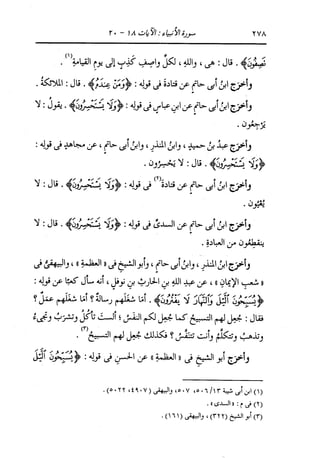 ٢٧٨ سورة الأنبياء : الآيات ١٨ - ٢٠
تَصِفُونَ﴾ . قال : هي ، واللهِ ، لكلِّ واصفِ كَذِبٍ إلى يومِ القيامةِ(١) .
وأخرَج ابنُ أبي حاتمٍ عن قتادةَ في قولِه : ﴿وَمَنْ عِندَهُ﴾ . قال : الملائكةُ .
وأخرَج ابنُ أبي حاتمٍ عن ابنِ عباسٍ في قولِه : ﴿وَلَا يَسْتَحْسِرُونَ﴾ . يقولُ : لا
يَرْجِعون .
وأخرَج عبدُ بنُ حميدٍ ، وابنُ المنذرِ ، وابنُ أبي حاتمٍ ، عن مجاهدٍ في قولِه :
﴿وَلَا يَسْتَحْسِرُونَ﴾ . قال : لا يَحْسِرون .
وأخرَج ابنُ أبي حاتمٍ عن قتادةَ(٢) في قولِه : ﴿وَلَا يَسْتَحْسِرُونَ﴾ . قال : لا
يُعْيُون .
وأخرَج ابنُ أبي حاتمٍ عن السديِّ في قولِه : ﴿وَلَا يَسْتَحْسِرُونَ﴾ . قال : لا
ينقطِعون من العبادةِ .
وأخرَج ابنُ المنذرِ ، وابنُ أبي حاتمٍ ، وأبو الشيخِ في « العظمةِ » ، والبيهقيُّ في
« شعبِ الإيمانِ » ، عن عبدِ اللهِ بنِ الحارثِ بنِ نوفلٍ ، أنه سأل كعبًا عن قولِه :
﴿يُسَبِّحُونَ ٱلَّيْلَ وَٱلنَّهَارَ لَا يَفْتُرُونَ﴾ . أمَا شغَلهم رسالةٌ ؟ أمَا شغَلهم عملٌ ؟
فقال : جُعِل لهم التسبيحُ كما جُعِل لكم النفَسُ ؛ ألستَ تأكُلُ وتشرَبُ وتجيءُ
وتذهبُ وتتكلَّمُ وأنت تتنفَّسُ ؟ فكذلك جُعِل لهم التسبيحُ(٣) .
وأخرَج أبو الشيخِ في « العظمةِ » عن الحسنِ في قولِه : ﴿يُسَبِّحُونَ ٱلَّيْلَ
(١) ابن أبي شيبة ١٣/ ٥٠٦، ٥٠٧، والبيهقي (٤٩٠٧، ٥٠٢٢) .
(٢) في م : « السدي » .
(٣) أبو الشيخ (٣٢٢) ، والبيهقي (١٦١) .